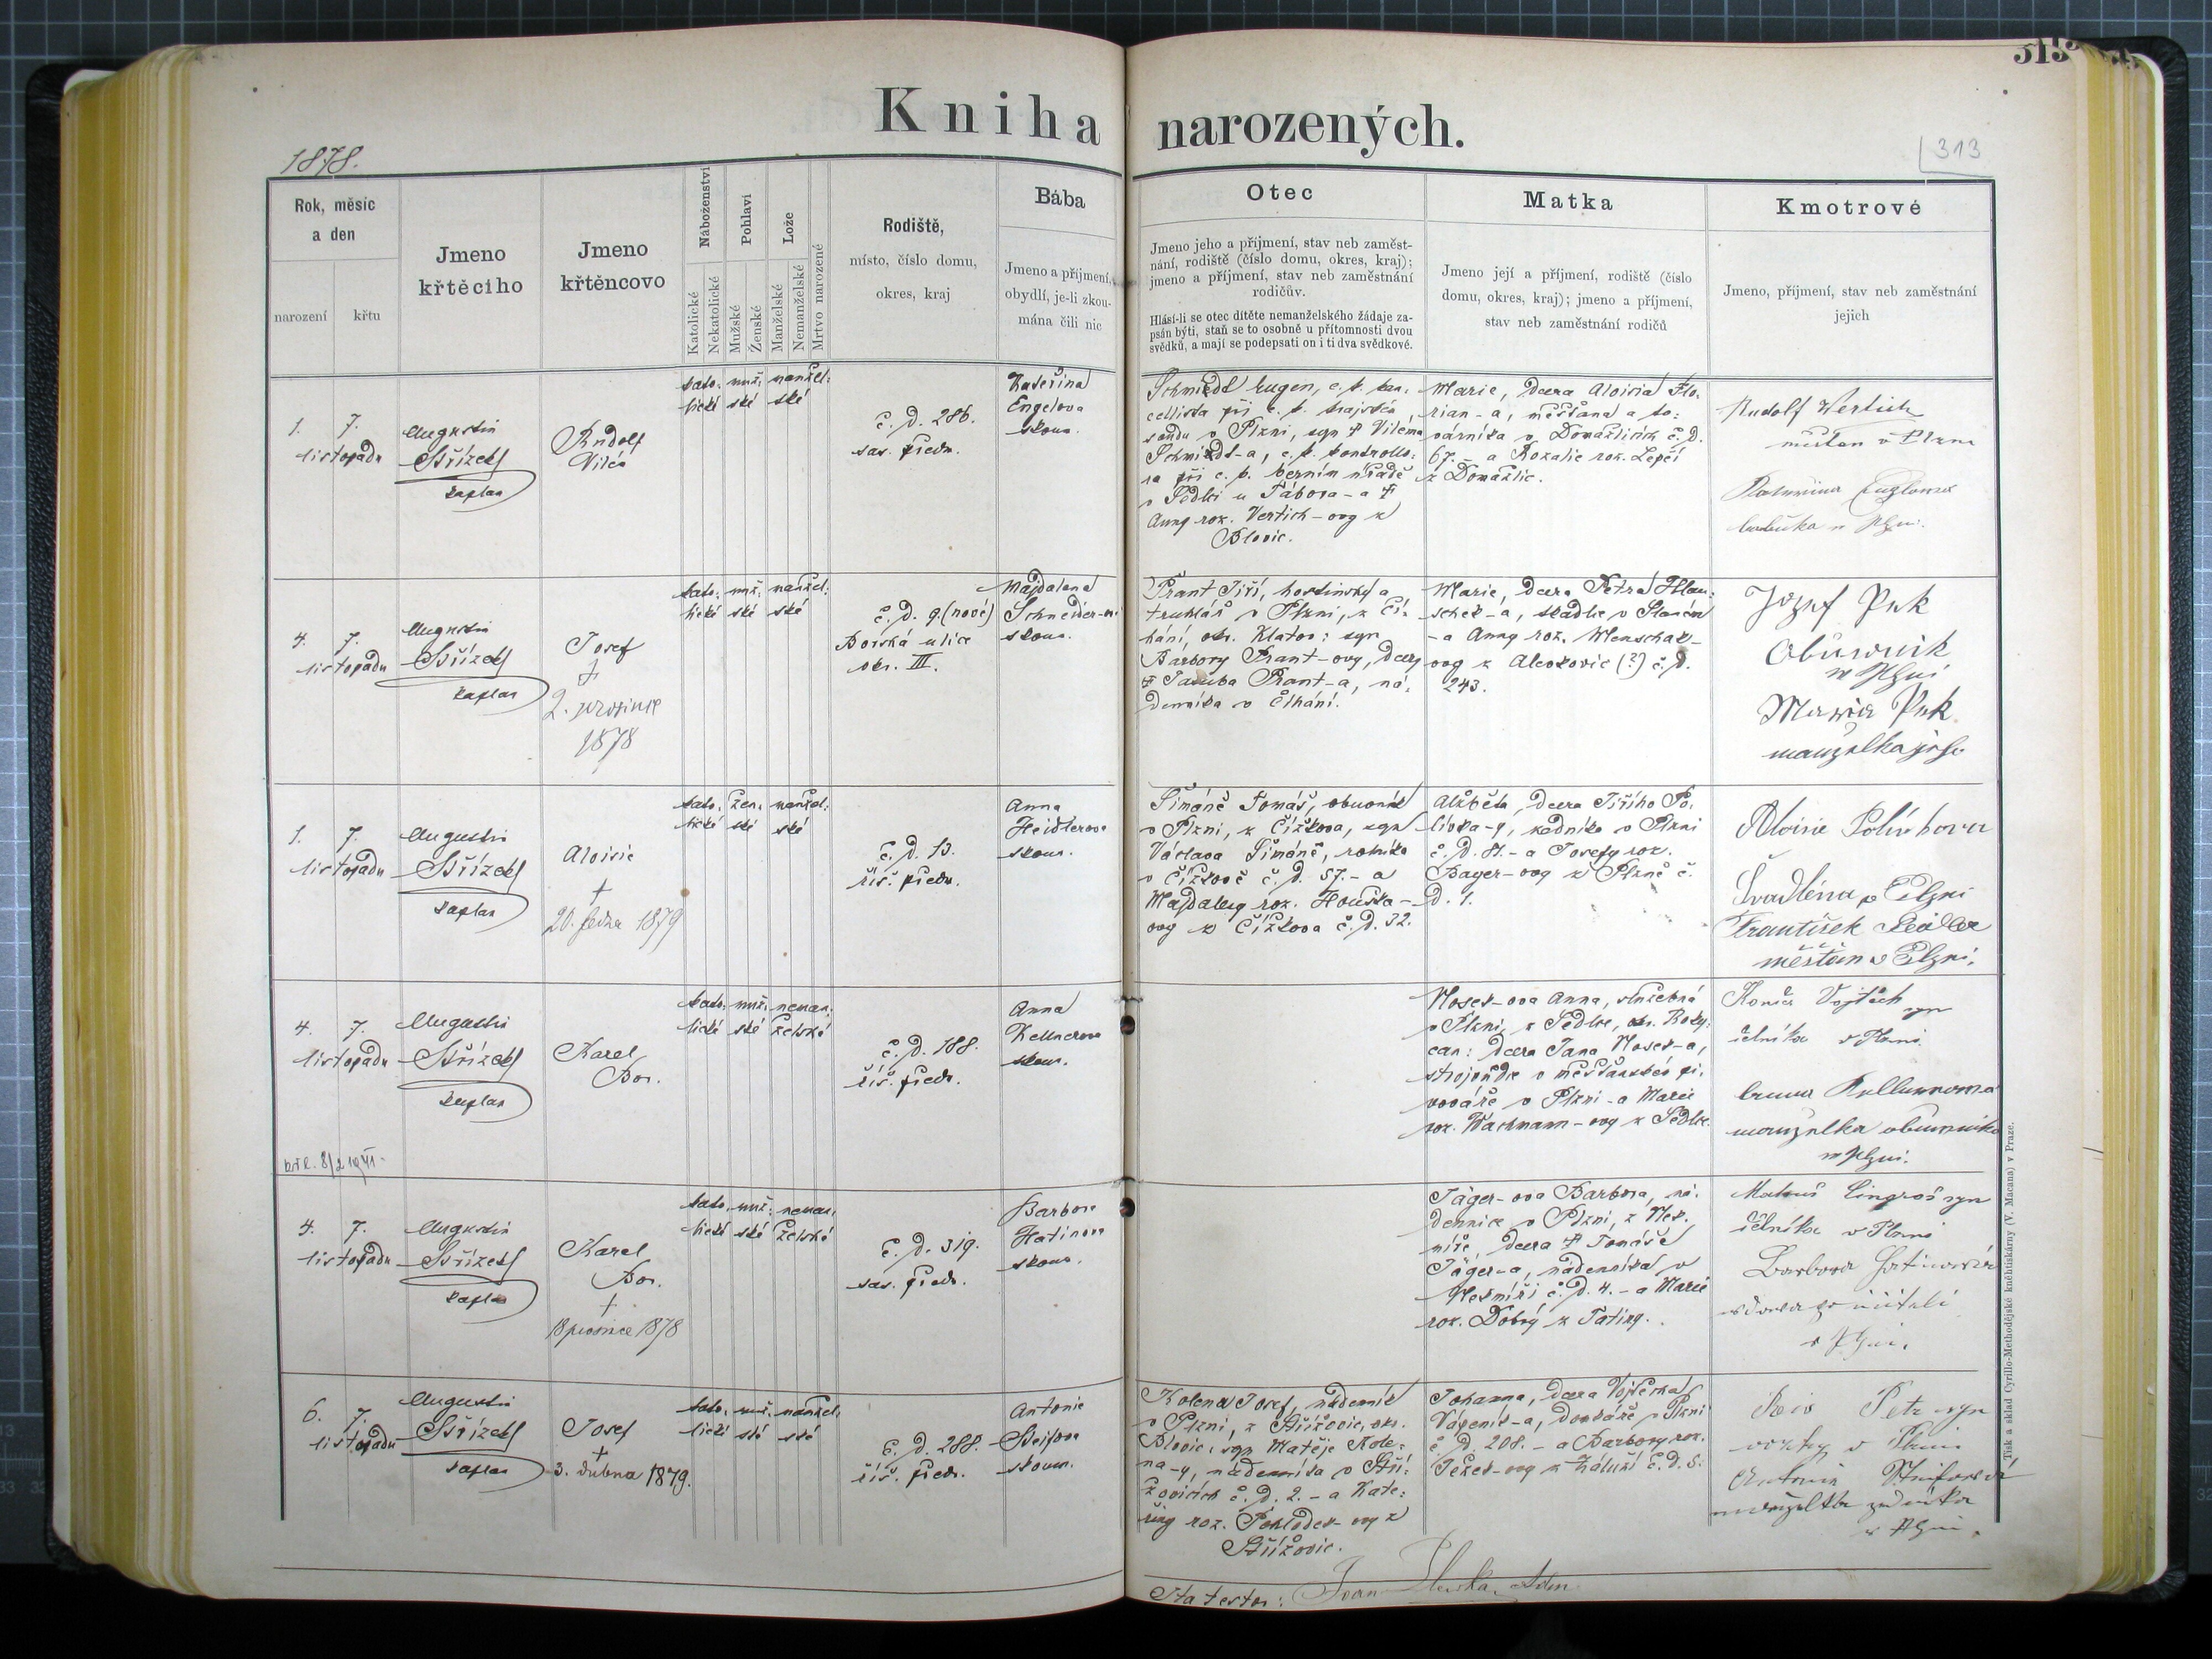 313
Kniha narozených.
1878.
313
Rok, měsíc
a den
narození
křtu
Jmeno
křtěcího
Jmeno
křtěncovo
Náboženství
Katolické
Nekatolické
Pohlaví
Mužské
Ženské
Lože
Manželské
Nemanželské
Mrtvo narozené
Rodiště,
místo, číslo domu,
okres, kraj
Bába
Jmeno a příjmení,
obydlí, je-li zkou-
mána čili nic
Otec
Jmeno jeho a příjmení, stav neb zaměst-
nání, rodiště (číslo domu, okres, kraj);
jmeno a příjmení, stav neb zaměstnání
rodičův.
Hlásí-li se otec dítěte nemanželského žádaje za-
psán býti, staň se to osobně u přítomnosti dvou
svědků, a mají se podepsati on i ti dva svědkové.
Matka
Jmeno její a příjmení, rodiště (číslo
domu, okres, kraj); jmeno a příjmení,
stav neb zaměstnání rodičů
Kmotrové
Jmeno, příjmení, stav neb zaměstnání
jejich
1. 7.
listopadu
Augustin
Střízek
kaplan
Rudolf
Vilém
kato- muž- manžel-
lické ské ské
č. d. 286.
sas. předm.
Kateřina
Engelova
zkoum.
Schmiedt Eugen, c. k. kan-
cellista při c. k. krajském
soudu v Plzni, syn † Viléma
Schmiedt-a, c. k. kontrollo-
ra při c. k. berním úřadě
v Sedlci u Tábora - a †
Anny roz. Vertich-ovy z
Blovic.
Marie, dcera Aloisia Flo-
rian-a, měšťana a to-
várníka v Domažlicích č. d.
67. - a Rozalie roz. Lepší
z Domažlic.
Rudolf Wertich
měšťan v Plzni
babička v Plzni.
4. 7.
listopadu
Augustin
Střízek
kaplan
Josef
†
2. prosince
1878
kato- muž- manžel-
lické ské ské
č. d. 9. (nové)
Borská ulice
okr. III.
Majdalena
Schneider-ová
zkoum.
Prant Jiří, hostinský a
truhlář v Plzni, z Čí-
hání, okr. Klatov: syn
Barbory Prant-ovy, dcery
† Jakuba Prant-a, ná-
denníka v Číhání.
Marie, dcera Petra
-a Anny roz.
243.
Jozef Puk
Obuwnik
w Plzni
Maria Puk
manzelka jeho
1. 7.
listopadu
Augustin
Střízek
kaplan
Aloisie
†
20. ledna 1879
kato- žen- manžel-
lické ské ské
č. d. 13.
říš. předm.
Anna
Heidlerova
zkoum.
Šimáně Tomáš, obuvník
v Plzni, z Čížkova, syn
Václava Šimáně, rolníka
v Čížkově č. d. 57. - a
Majdaleny roz. Houška-
ovy z Čížkova č. d. 32.
Alžběta, dcera Jiřího Po-
lívka-y, zedníka v Plzni
č. d. 81. - a Josefy roz.
Bayer-ovy z Plzně č.
d. 1.
Aloisie Polívkova
Švadlena v Plzni
František
měštan v Plzni.
4. 7.
listopadu
Augustin
Střízek
kaplan
Karel
Bor.
kato- muž- neman-
lické ské želské
č. d. 188.
říš. předm.
Anna
Kellnerova
zkoum.
Nosek-ova Anna, služebná
v Plzni, z Sedlce, okr. Roky-
can: dcera Jana Nosek-a,
strojvůdce v měšťanském pi-
vováře v Plzni - a Marie
roz. Wachmann-ovy z Sedlce.
Vojtěch syn
v Plzni
manzelka obuwnika
w Plzni.
4. 7.
listopadu
Augustin
Střízek
kaplan
Karel
Bor.
†
18 prosince 1878
kato- muž- neman-
lické ské želské
č. d. 319.
sas. předm.
Barbora
Hatinova
zkoum.
Jäger-ova Barbora, ná-
dennice v Plzni, z Nek-
míře, dcera † Tomáše
Jäger-a, nádenníka v
Nekmíři č. d. 4. - a Marie
roz. Dobrý z Tatiny.
syn
v Plzni
Barbora Hatinová
v Plzni.
6. 7.
listopadu
Augustin
Střízek
kaplan
Josef
†
3. dubna 1879.
kato- muž- manžel-
lické ské ské
č. d. 288.
říš. předm.
Antonie
zkoum.
Kolena Josef, nádenník
v Plzni, z Střížovic, okr.
Blovic, syn Matěje Kole-
na-y, nádenníka v Stří-
žovicích č. d. 2. - a Kate-
řiny roz. ovy z
Střížovic.
Johanna, dcera Vojtěcha
Vápeník-a, v Plzni
č. d. 208. - a Barbory roz.
Ježek-ovy z Záluží č. d. 5.
Petr syn
v Plzni
manželka zedníka
v Plzni.
Ita testor: Joan
Tisk a sklad Cyrillo-Methodějské kněhtiskárny (V. Macana) v Praze.